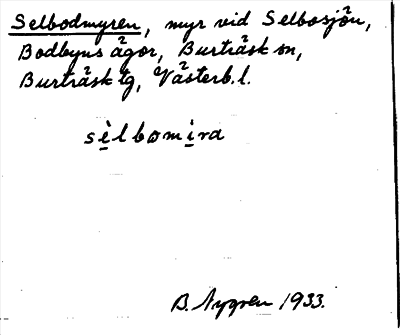 Selbodmyren, myr vid Selbosjön,
Bodbyns ägor, Burträsk sn,
Burträsk tg, Västerb. l.
sèlbomìra
B. Nygren 1933.